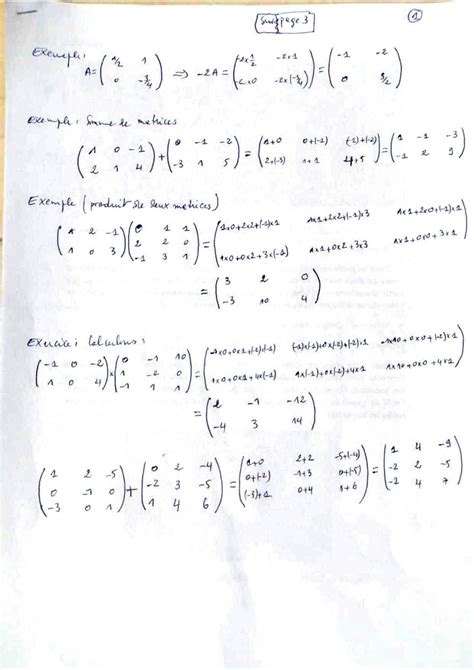 Suite page 3
1
Exemple:
A = ( 1/2 1 ; 0 -3/4 ) => -2A = ( -2x1/2 -2x1 ; -2x0 -2x(-3/4) ) = ( -1 -2 ; 0 3/2 )
Exemple: Somme de matrices
( 1 0 -1 ; 2 1 4 ) + ( 0 -1 -2 ; -3 1 5 ) = ( 1+0 0+(-1) (-1)+(-2) ; 2+(-3) 1+1 4+5 ) = ( 1 -1 -3 ; -1 2 9 )
Exemple (produit de deux matrices)
( 1 2 -1 ; 1 0 3 ) ( 0 1 1 ; 2 2 0 ; -1 3 1 ) = ( 1x0+2x2+(-1)x1 1x1+2x2+(-1)x3 1x1+2x0+(-1)x1 ; 1x0+0x2+3x(-1) 1x1+0x2+3x3 1x1+0x0+3x1 )
= ( 3 2 0 ; -3 10 4 )
Exercice: Calculons:
( -1 0 -2 ; 1 0 4 ) x ( 0 -1 10 ; 1 -2 0 ; -1 1 1 ) =
= ( 2 -1 -12 ; -4 3 14 )
( 1 2 -5 ; 0 -1 0 ; -3 0 1 ) + ( 0 2 -4 ; -2 3 -5 ; 1 4 6 ) = ( 1+0 2+2 -5+(-4) ; 0+(-2) -1+3 0+(-5) ; (-3)+1 0+4 1+6 ) = ( 1 4 -9 ; -2 2 -5 ; -2 4 7 )